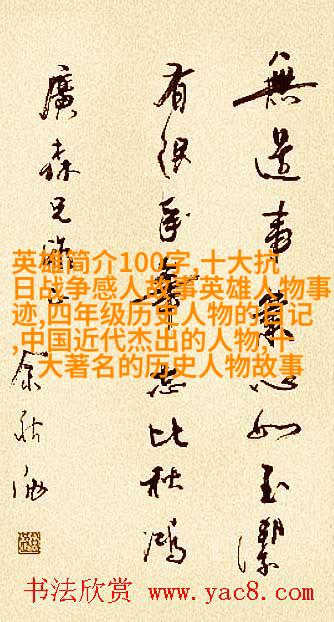 無邊事業心如玉潔
有限年華志比秋鴻
廣森兄
余秋雨
英雄简介100字,十大抗
日战争感人故事英雄人物事
迹,四年级历史人物的日记
,中国近代杰出的人物,十
大著名的历史人物故事
书法欣赏 www.yac8.com